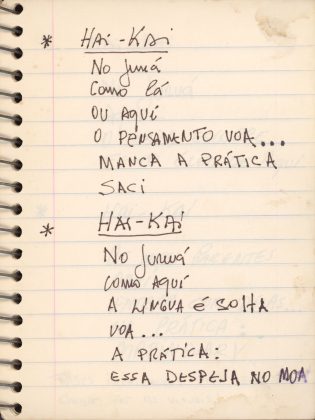 * HAI-KAI
No Juruá
Como lá
OU AQUÍ
O PENSAMENTO VOA...
MANCA A PRÁTICA
SACI
* HAI-KAI
No Juruá
COMO AQUÍ
A LÍNGUA É SOLTA
VOA...
A PRÁTICA:
ESSA DESPEJA NO MOA